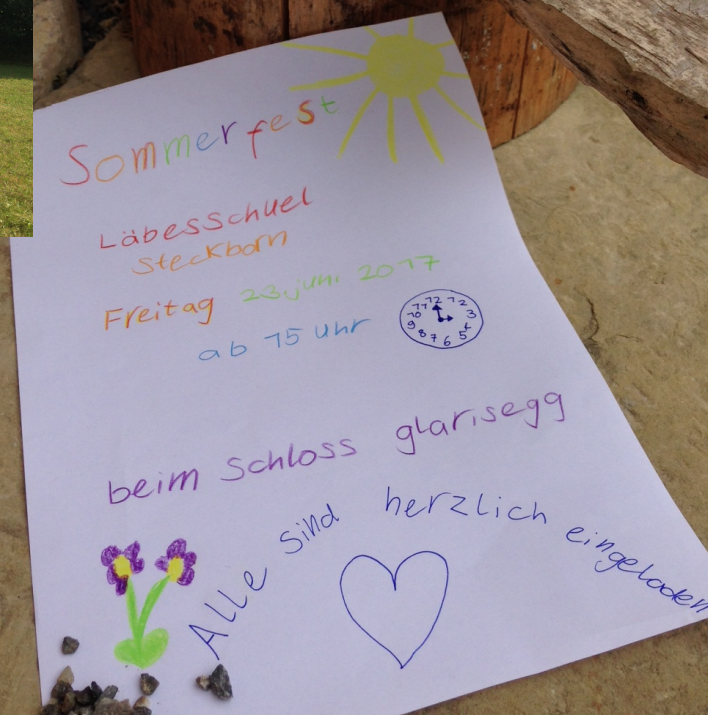 Sommerfest
Läbesschuel
Steckborn
Freitag 23.juni 2017
ab 15 Uhr
11 12 1 2
10 3
9 4
8 7 6 5
beim Schloss glarisegg
Alle sind herzlich eingeladen